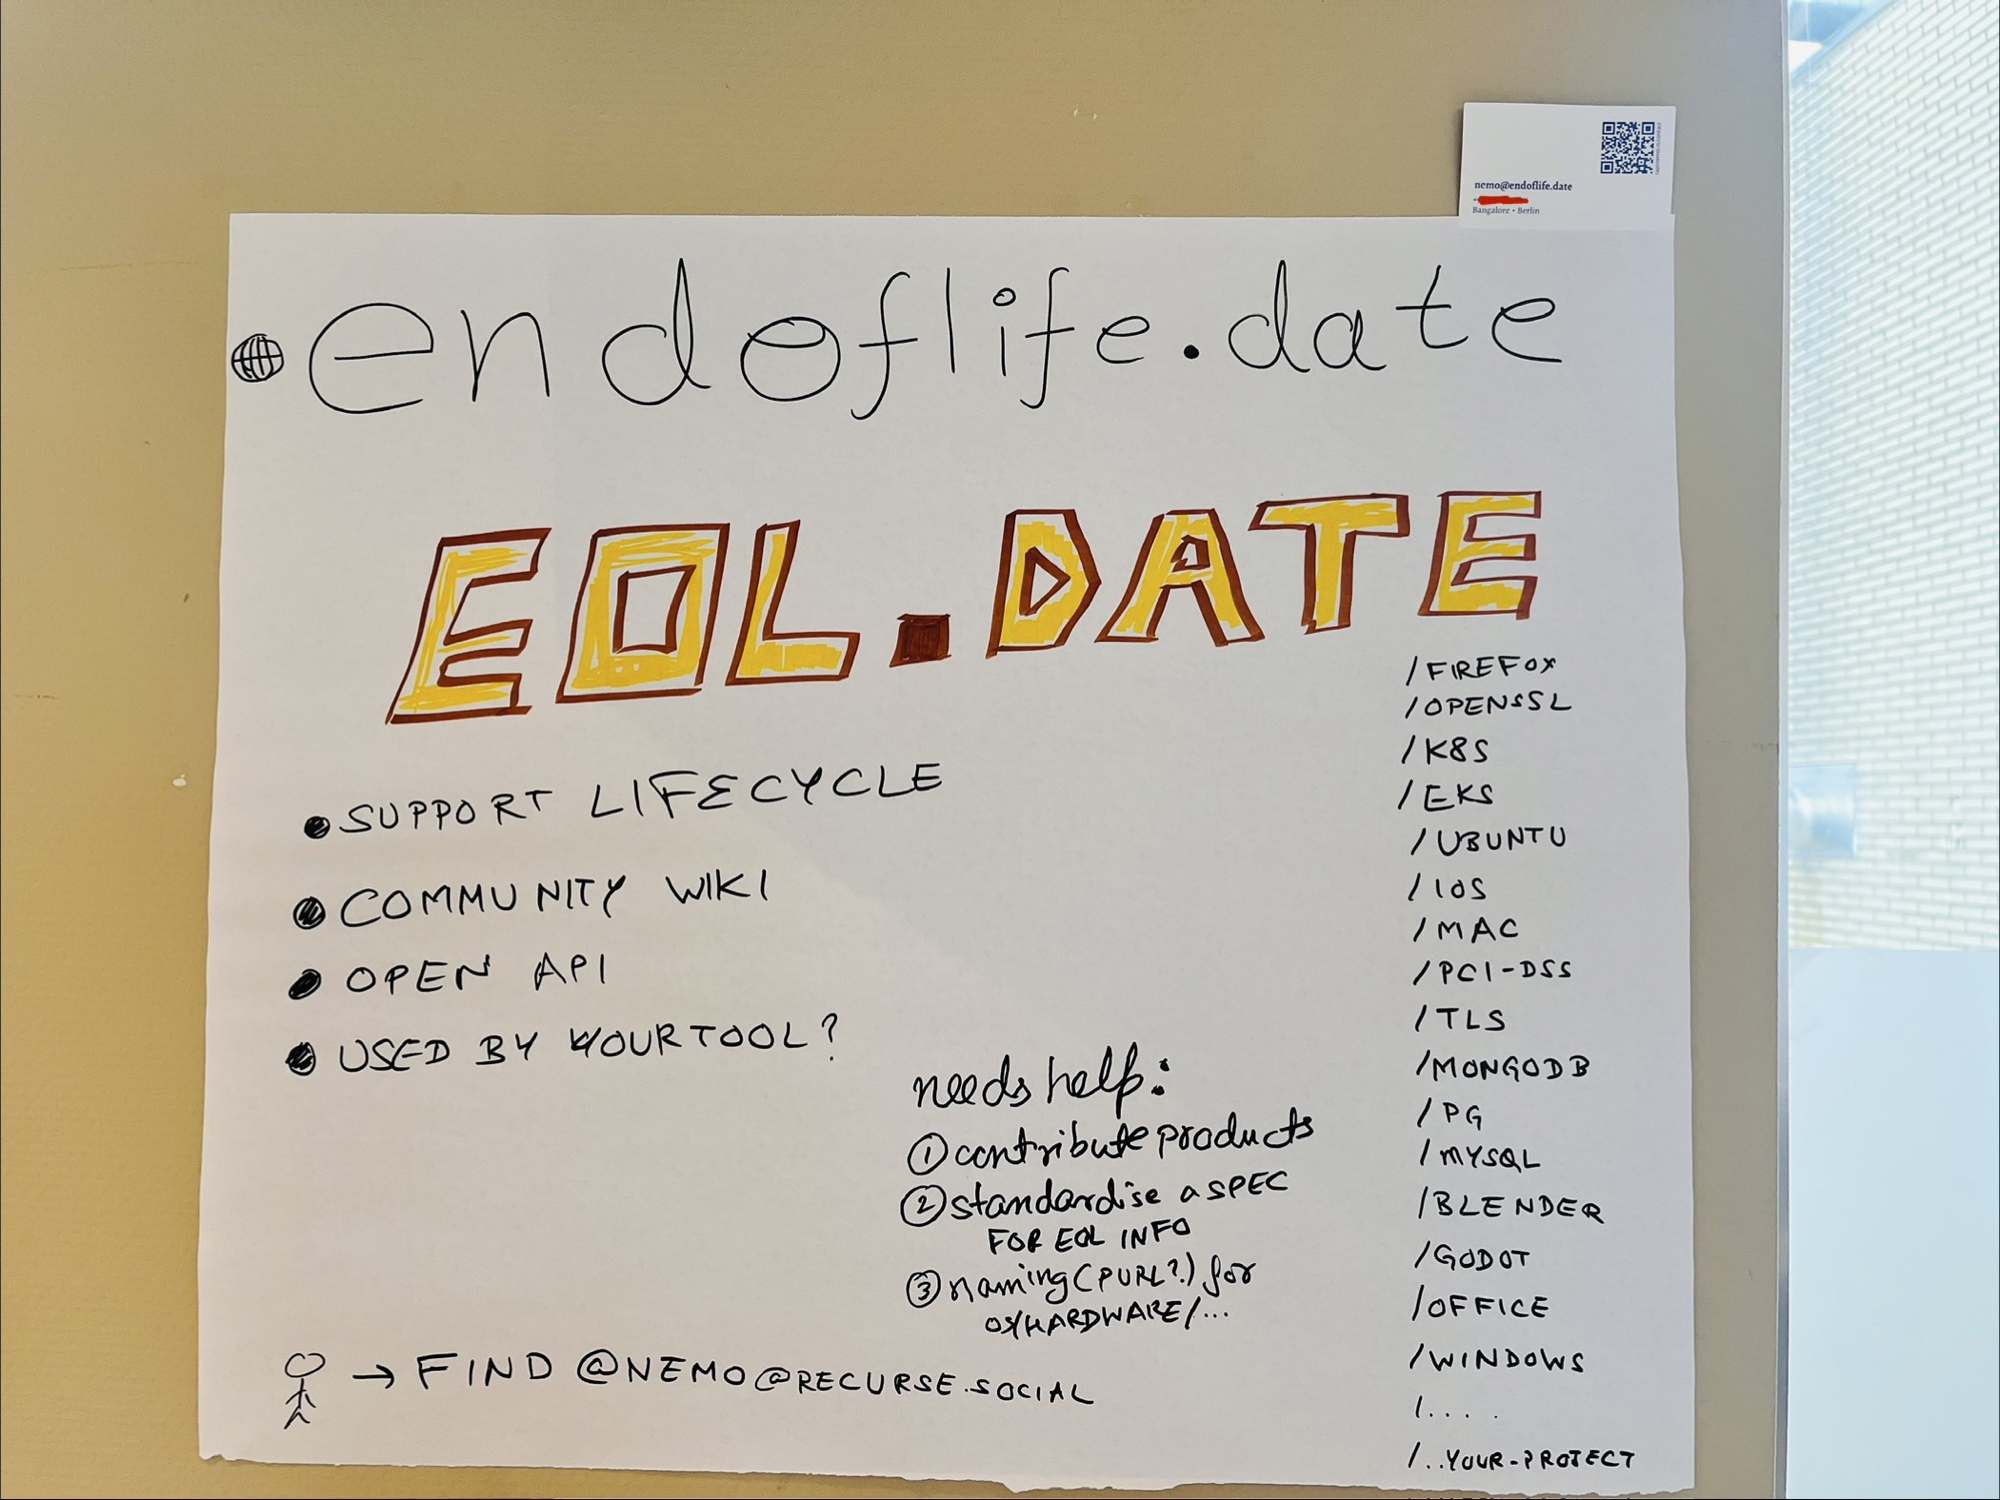 nemo@endoflife.date
Bangalore • Berlin
endoflife.date
EOL.DATE
• SUPPORT LIFECYCLE
• COMMUNITY WIKI
• OPEN API
• USED BY YOUR TOOL?
needs help:
① contribute products
② standardise a SPEC
FOR EOL INFO
③ naming (PURL?) for
OS/HARDWARE/...
→ FIND @NEMO@RECURSE.SOCIAL
/FIREFOX
/OPENSSL
/K8S
/EKS
/UBUNTU
/IOS
/MAC
/PCI-DSS
/TLS
/MONGODB
/PG
/MYSQL
/BLENDER
/GODOT
/OFFICE
/WINDOWS
/.... .
/..YOUR-PROJECT